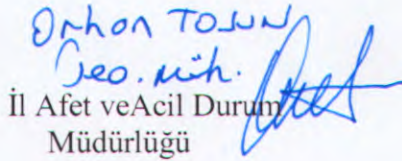 Orhan TOSUN
Jeo. Müh.
İl Afet veAcil Durum
Müdürlüğü